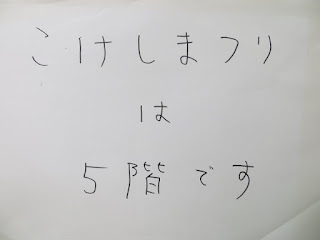 こけしまつり
は
5階です